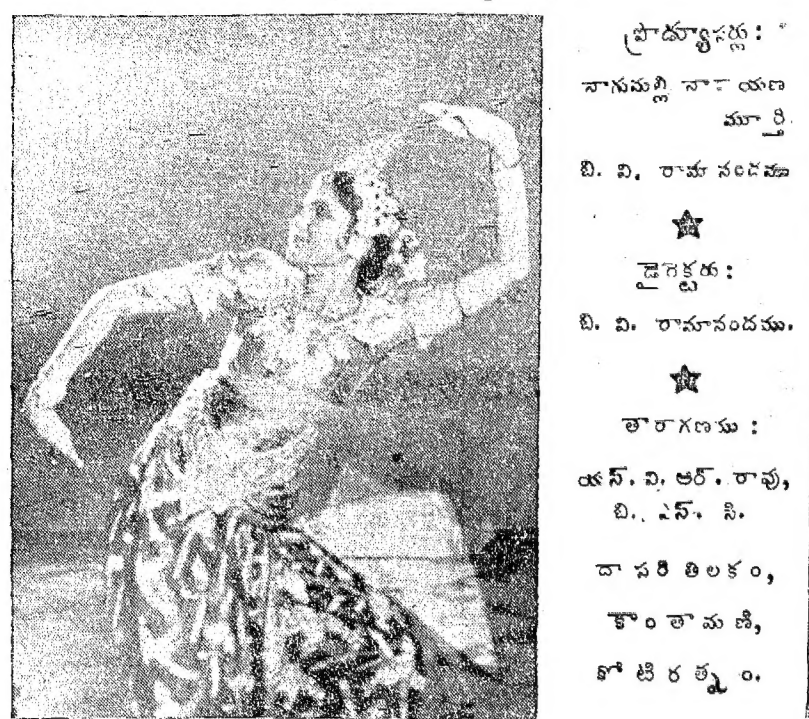 ప్రొడ్యూసర్లు :
నాగుమల్లి నారాయణ
మూర్తి.
బి. వి. రామానందము
డైరెక్టరు :
బి. వి. రామానందము.
తారాగణము :
యస్. వి. ఆర్. రావు,
బి. ఎస్. సి.
దాసరి తిలకం,
కాంతామణి,
కోటిరత్నం.